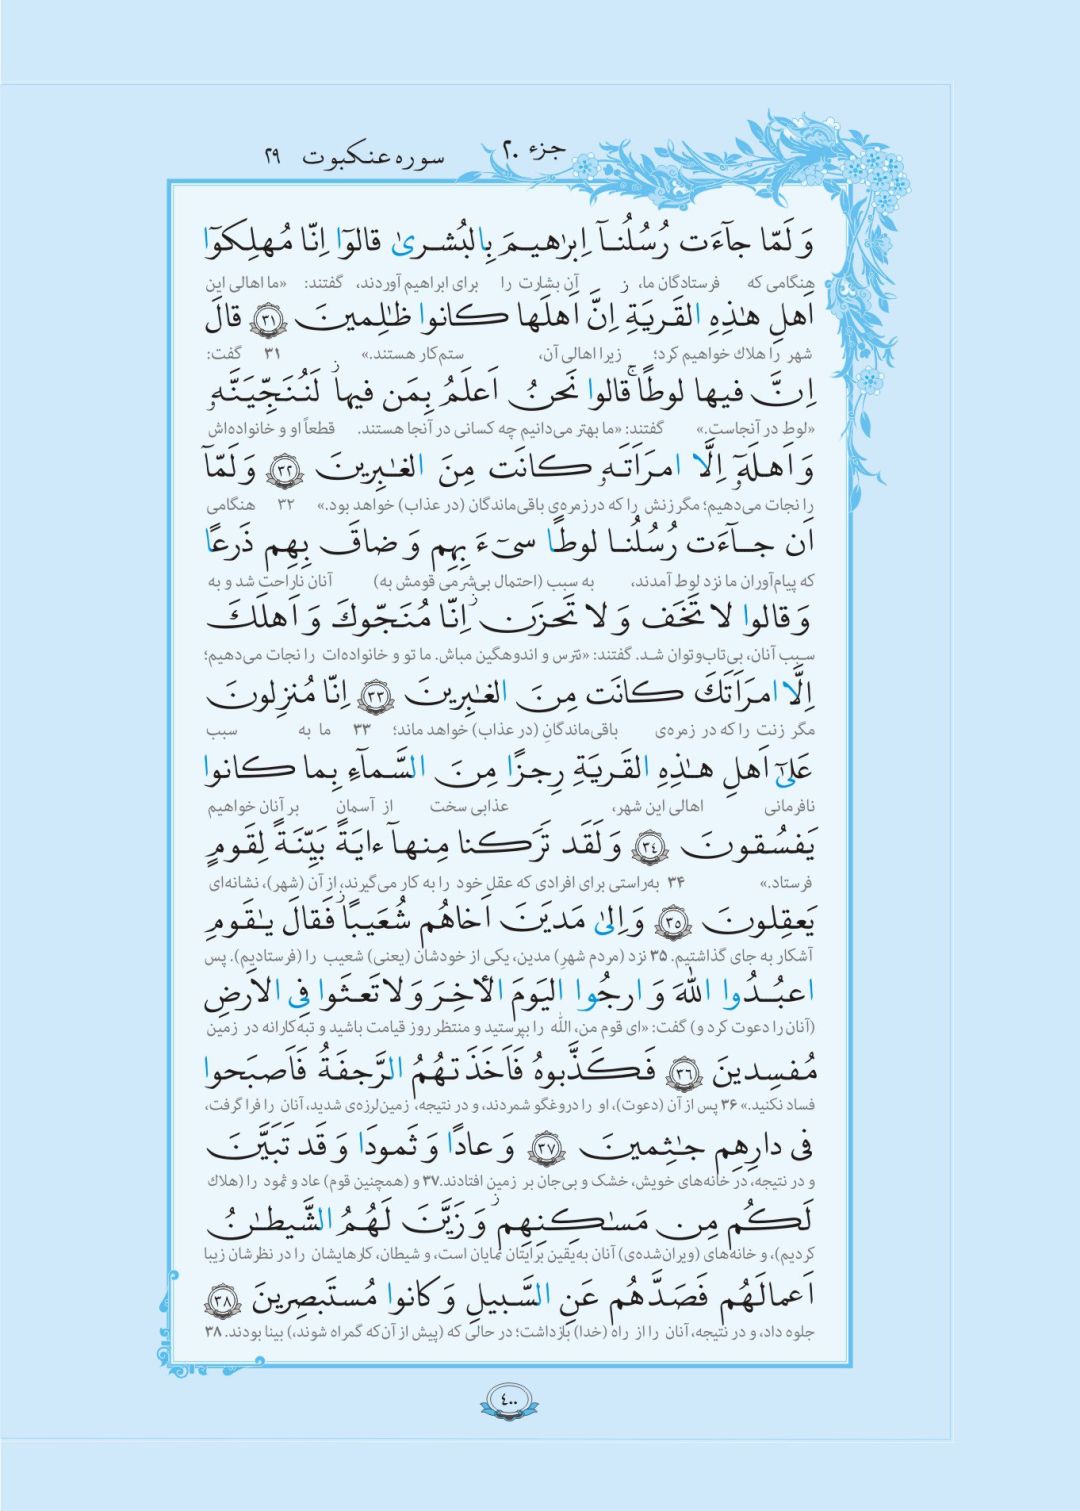 جزء ۲۰
سوره عنکبوت ۲۹
وَ لَمّا جآءَت رُسُلُنآ اِبرٰهیمَ بِالبُشریٰ قالوٓا اِنّا مُهلِکوٓا
هنگامی که فرستادگان ما، آن بشارت را برای ابراهیم آوردند، گفتند: «ما اهالی این
اَهلِ هٰذِهِ القَریَةِ اِنَّ اَهلَها کانوا ظٰلِمینَ ﴿٣١﴾ قالَ
شهر را هلاك خواهیم کرد؛ زیرا اهالی آن، ستم‌کار هستند.» ۳۱ گفت:
اِنَّ فیها لوطًا ۚ قالوا نَحنُ اَعلَمُ بِمَن فیها ۖ لَنُنَجِّیَنَّهٗ
«لوط در آنجاست.» گفتند: «ما بهتر می‌دانیم چه کسانی در آنجا هستند. قطعاً او و خانواده‌اش
وَ اَهلَهٗٓ اِلَّا امرَاَتَهٗ کانَت مِنَ الغٰبِرینَ ﴿٣٢﴾ وَ لَمّآ
را نجات می‌دهیم؛ مگر زنش را که در زمره‌ی باقی‌ماندگان (در عذاب) خواهد بود.» ۳۲ هنگامی
اَن جآءَت رُسُلُنا لوطًا سیٓءَ بِهِم وَ ضاقَ بِهِم ذَرعًا
که پیام‌آوران ما نزد لوط آمدند، به سبب (احتمال بی‌شرمی قومش به) آنان ناراحت شد و به
وَ قالوا لا تَخَف وَ لا تَحزَن ۖ اِنّا مُنَجّوكَ وَ اَهلَكَ
سبب آنان، بی‌تاب‌وتوان شد. گفتند: «نترس و اندوهگین مباش. ما تو و خانواده‌ات را نجات می‌دهیم؛
اِلَّا امرَاَتَكَ کانَت مِنَ الغٰبِرینَ ﴿٣٣﴾ اِنّا مُنزِلونَ
مگر زنت را که در زمره‌ی باقی‌ماندگانِ (در عذاب) خواهد ماند؛ ۳۳ ما به سبب
عَلیٰٓ اَهلِ هٰذِهِ القَریَةِ رِجزًا مِنَ السَّمآءِ بِما کانوا
نافرمانی اهالی این شهر، عذابی سخت از آسمان بر آنان خواهیم
یَفسُقونَ ﴿٣٤﴾ وَ لَقَد تَرَکنا مِنهآ ءایَةً بَیِّنَةً لِقَومٍ
فرستاد.» ۳۴ به‌راستی برای افرادی که عقل خود را به کار می‌گیرند، از آن (شهر)، نشانه‌ای
یَعقِلونَ ﴿٣٥﴾ وَ اِلیٰ مَدیَنَ اَخاهُم شُعَیبًا ۖ فَقالَ یٰقَومِ
آشکار به جای گذاشتیم. ۳۵ نزد (مردم شهرِ) مدین، یکی از خودشان (یعنی) شعیب را (فرستادیم). پس
اعبُدُوا اللهَ وَ ارجُوا الیَومَ الأخِرَ وَ لا تَعثَوا فِی الاَرضِ
(آنان را دعوت کرد و) گفت: «ای قوم من، الله را بپرستید و منتظر روز قیامت باشید و تبه‌کارانه در زمین
مُفسِدینَ ﴿٣٦﴾ فَکَذَّبوهُ فَاَخَذَتهُمُ الرَّجفَةُ فَاَصبَحوا
فساد نکنید.» ۳۶ پس از آن (دعوت)، او را دروغگو شمردند، و در نتیجه، زمین‌لرزه‌ی شدید، آنان را فرا گرفت،
فی دارِهِم جٰثِمینَ ﴿٣٧﴾ وَ عادًا وَ ثَمودَا وَ قَد تَبَیَّنَ
و در نتیجه، در خانه‌های خویش، خشک و بی‌جان بر زمین افتادند. ۳۷ و (همچنین قوم) عاد و ثمود را (هلاك
لَکُم مِن مَسٰکِنِهِم ۖ وَ زَیَّنَ لَهُمُ الشَّیطٰنُ
کردیم)، و خانه‌های (ویران‌شده‌ی) آنان به‌یقین برایتان نمایان است، و شیطان، کارهایشان را در نظرشان زیبا
اَعمالَهُم فَصَدَّهُم عَنِ السَّبیلِ وَ کانوا مُستَبصِرینَ ﴿٣٨﴾
جلوه داد، و در نتیجه، آنان را از راه (خدا) بازداشت؛ در حالی که (پیش از آن‌که گمراه شوند،) بینا بودند. ۳۸
٤٠٠